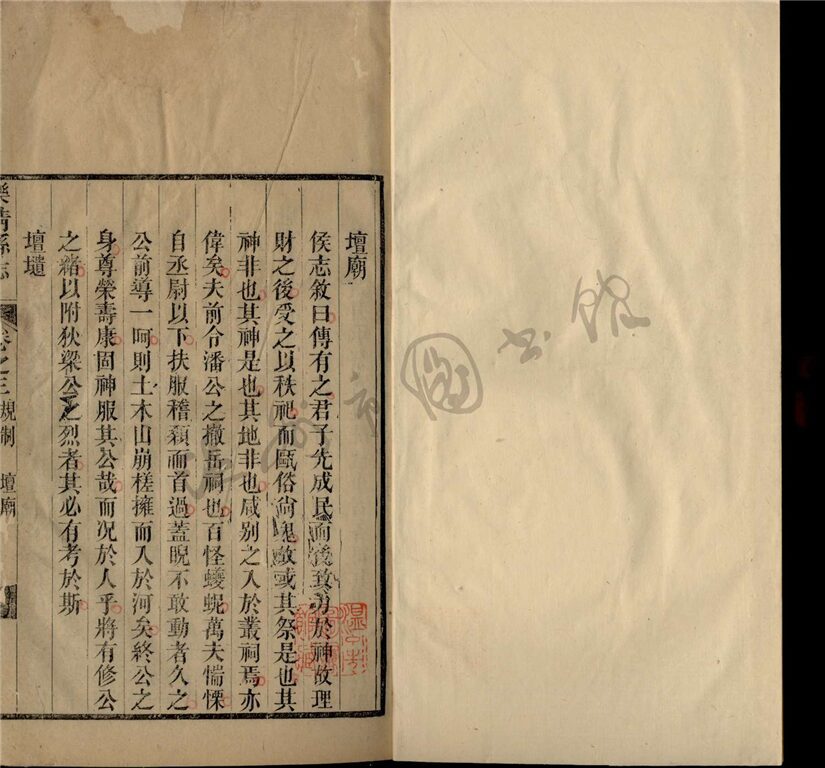 壇廟
侯志敘曰傳有之君子先成民而後致力於神故理
財之後受之以秩祀而甌俗尙鬼敵或其祭是也其
神非也其神是也其地非也咸别之入於叢祠焉亦
偉矣夫前令潘公之撤岳祠也百怪蠖蜺萬夫惴慄
自丞尉以下扶服稽顙而首過蓋睨不敢動者久之
公前導一呵則土木山崩槎擁而入於河矣終公之
身尊榮壽康固神服其公哉而况於人乎將有修公
之緒以附狄梁公之烈者其必有考於斯
壇壝
樂清縣志
卷之三
規制
壇廟
圖書館